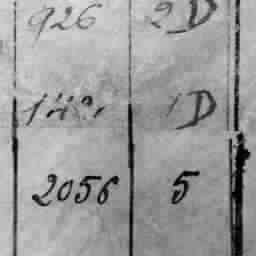 926 2D
1D
2056 5